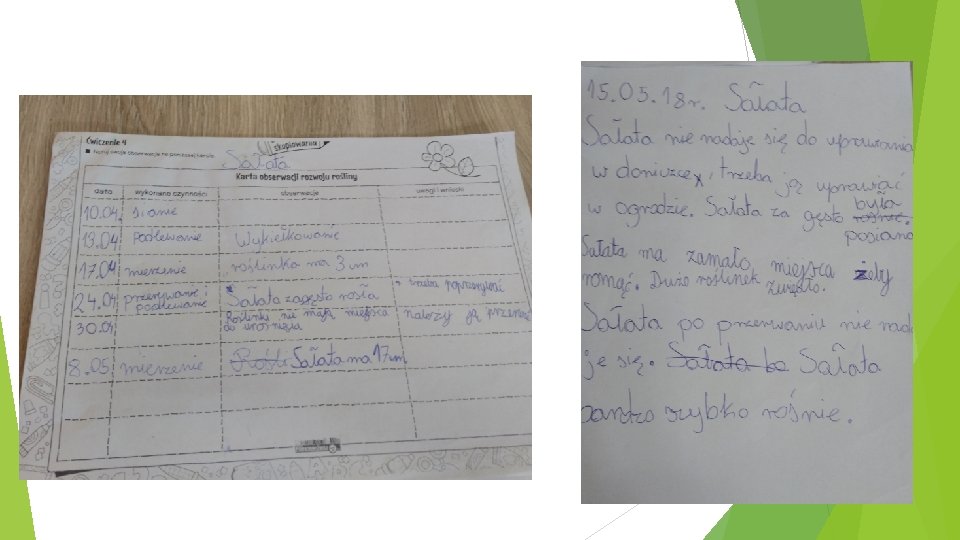 Ćwiczenie 4
skupiowarnia
Sałata
Karta obserwacji rozwoju rośliny
data wykonane czynności obserwacje uwagi i wnioski
10.04 sianie
13.04 podlewanie Wykiełkowanie
17.04 mierzenie roślinka ma 3 cm
24.04 przerywanie i podlewanie Sałata zagęsto rosła trzeba poprzerywać
30.04 Roślinki nie mają miejsca do urośnięcia należy ją
8.05 mierzenie Sałata ma 17 cm
15.05.18r. Sałata
Sałata nie nadaje się do uprawiania
w doniczce, trzeba ją uprawiać
w ogrodzie. Sałata za gęsto rośnie. była
posiana
Sałata ma zamało miejsca żeby
Dużo roślinek zwiędło.
Sałata po przerwaniu nie nada
je się. Sałata ba Sałata
bardzo szybko rośnie.